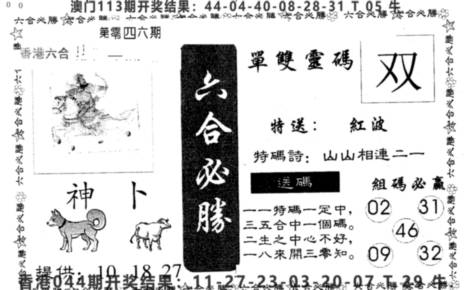 澳门113期开奖结果：44-04-40-08-28-31 T 05 牛
第零四六期
香港六合
單雙靈碼
双
特送： 紅波
特碼詩： 山山相連二一
六合必勝
送碼
組碼必贏
神 卜
一一特碼一定中，
三五合中一個碼。
二生之中心不好，
一八來開三零知。
02 31
46
09 32
提供： 10 18 27
香港044期开奖结果：11-27-23-03-20-07 T 39 牛